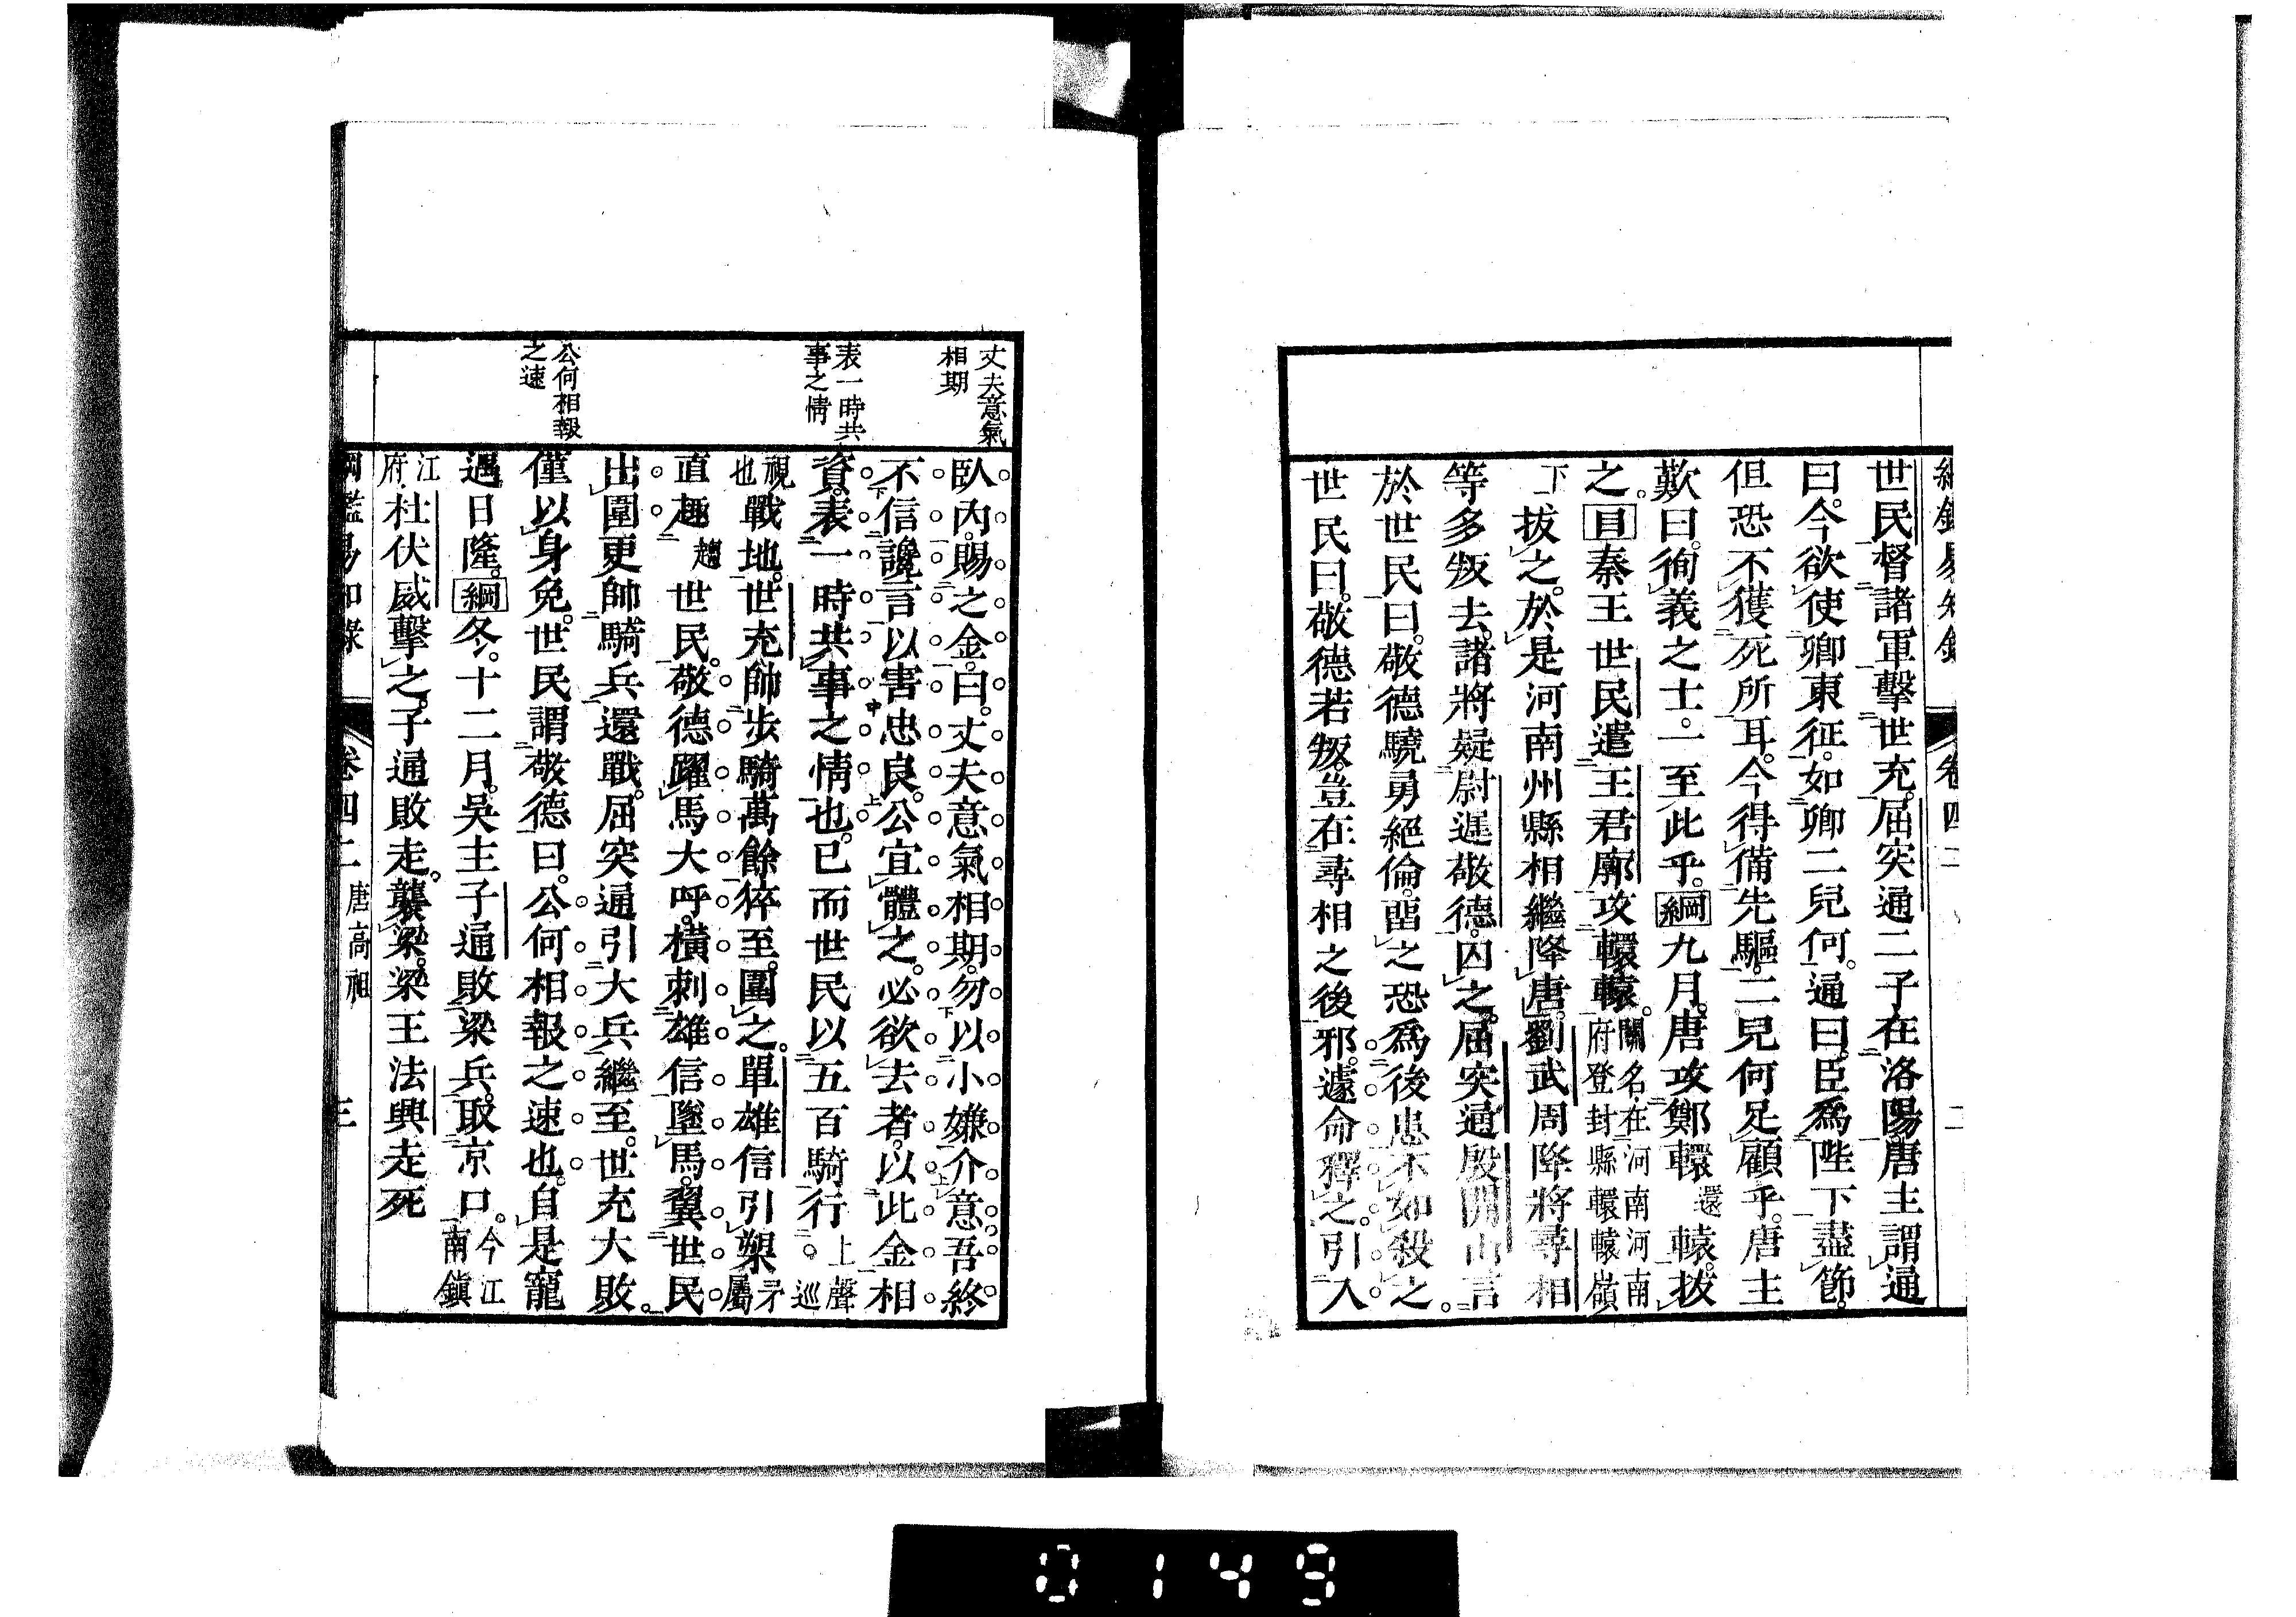 綱鑑易知錄 卷四二 二
世民督諸軍擊世充。屈突通二子在洛陽。唐主謂通
曰。今欲使卿東征。如卿二兒何。通曰。臣爲陛下盡節。
但恐不獲死所耳。今得備先驅。二兒何足顧乎。唐主
歎曰。徇義之士。一至此乎。綱九月。唐攻鄭轘還轅。拔
之。目秦王世民遣王君廓攻轘轅。關名。在河南河南府登封縣轘轅嶺
下拔之。於是河南州縣相繼降唐。劉武周降將尋相
等多叛去。諸將疑尉遲敬德。囚之。屈突通殷開山言
於世民曰。敬德驍勇絕倫。畱之恐爲後患。不如殺之。
世民曰。敬德若叛。豈在尋相之後邪。遽命釋之。引入
丈夫意氣相期
臥內。賜之金。曰。丈夫意氣相期。勿以小嫌介意。吾終
不信讒言以害忠良。公宜體之。必欲去者。以此金相
表一時共事之情
資。表一時共事之情也。已而世民以五百騎行上聲。巡
視也戰地。世充帥步騎萬餘猝至。圍之。單雄信引槊矛屬
直趣趨世民。敬德躍馬大呼。橫刺雄信墜馬。翼世民
出圍。更帥騎兵還戰。屈突通引大兵繼至。世充大敗。
公何相報之速
僅以身免。世民謂敬德曰。公何相報之速也。自是寵
遇日隆。綱冬。十二月。吳主子通敗梁兵。取京口。今江南鎮
江府杜伏威擊之。子通敗走。襲梁。梁王法興走死
綱鑑易知錄 卷四二 唐高祖 三
0149